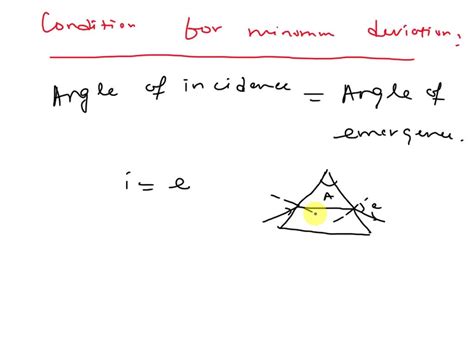 Condition for minimum deviation:
Angle of incidence = Angle of
emergence.
i = e
A
e